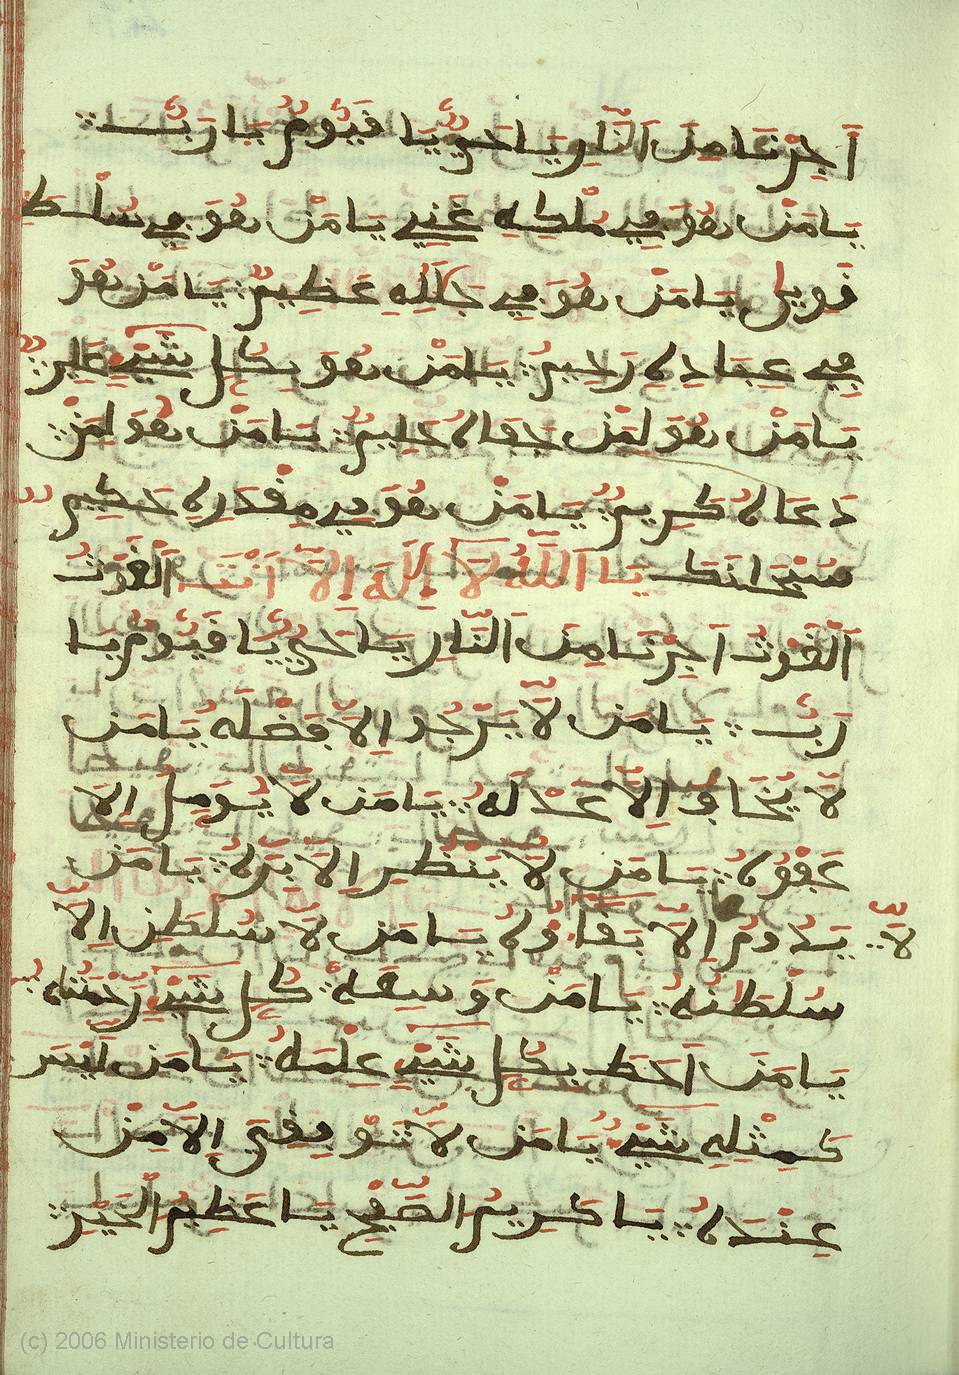 أَجِرْنَا مِنَ النَّارِ يَا حَيُّ يَا قَيُّومُ يَا رَبُّ
يَا مَنْ هُوَ فِي مُلْكِهِ غَنِيٌّ يَا مَنْ هُوَ فِي سُلْطَـ
قَوِيٌّ يَا مَنْ هُوَ فِي جَلَلِهِ عَظِيمٌ يَا مَنْ هُوَ
فِي عِبَادِهِ رَحِيمٌ يَا مَنْ هُوَ بِكُلِّ شَيْءٍ عَلِيمٌ
يَا مَنْ هُوَ لِمَنْ جَفَاهُ حَلِيمٌ يَا مَنْ هُوَ لِمَنْ
دَعَاهُ كَرِيمٌ يَا مَنْ هُوَ فِي مِقْدَرِهِ حَكِيمٌ
سُبْحَانَكَ يَا اَللَّهُ لَا إِلَهَ إِلَّا أَنْتَ الْغَوْثُ
الْغَوْثُ أَجِرْنَا مِنَ النَّارِ يَا حَيُّ يَا قَيُّومُ يَا
رَبُّ يَا مَنْ لَّا يُرْجُو إِلَّا فَضْلَهُ يَا مَنْ
لَّا يُخَافُ إِلَّا عَدْلَهُ يَا مَنْ لَّا يُومِلُ إِلَّا
عَفْوَهُ يَا مَنْ لَّا يَنْظُرُ إِلَّا بِرَّهُ يَا مَنْ
لَّا يَدُومُ إِلَّا بَقَاؤُهُ يَا مَنْ لَّا سُلْطَنَ إِلَّا
سُلْطَنُهُ يَا مَنْ وَسِعَهْ كُلَّ شَيْءٍ رَحْمَتُهُ
يَا مَنْ أَحَطَ بِكُلِّ شَيْءٍ عِلْمُهُ يَا مَنْ لَيْسَ
كَمِثْلِهِ شَيْءٌ يَا مَنْ لَا تَوْفِقَ إِلَّا مِنْ
عِنْدِهِ يَا كَرِيمُ الصَّفْحِ يَا عَظِيمُ الْخَيْرِ
(c) 2006 Ministerio de Cultura